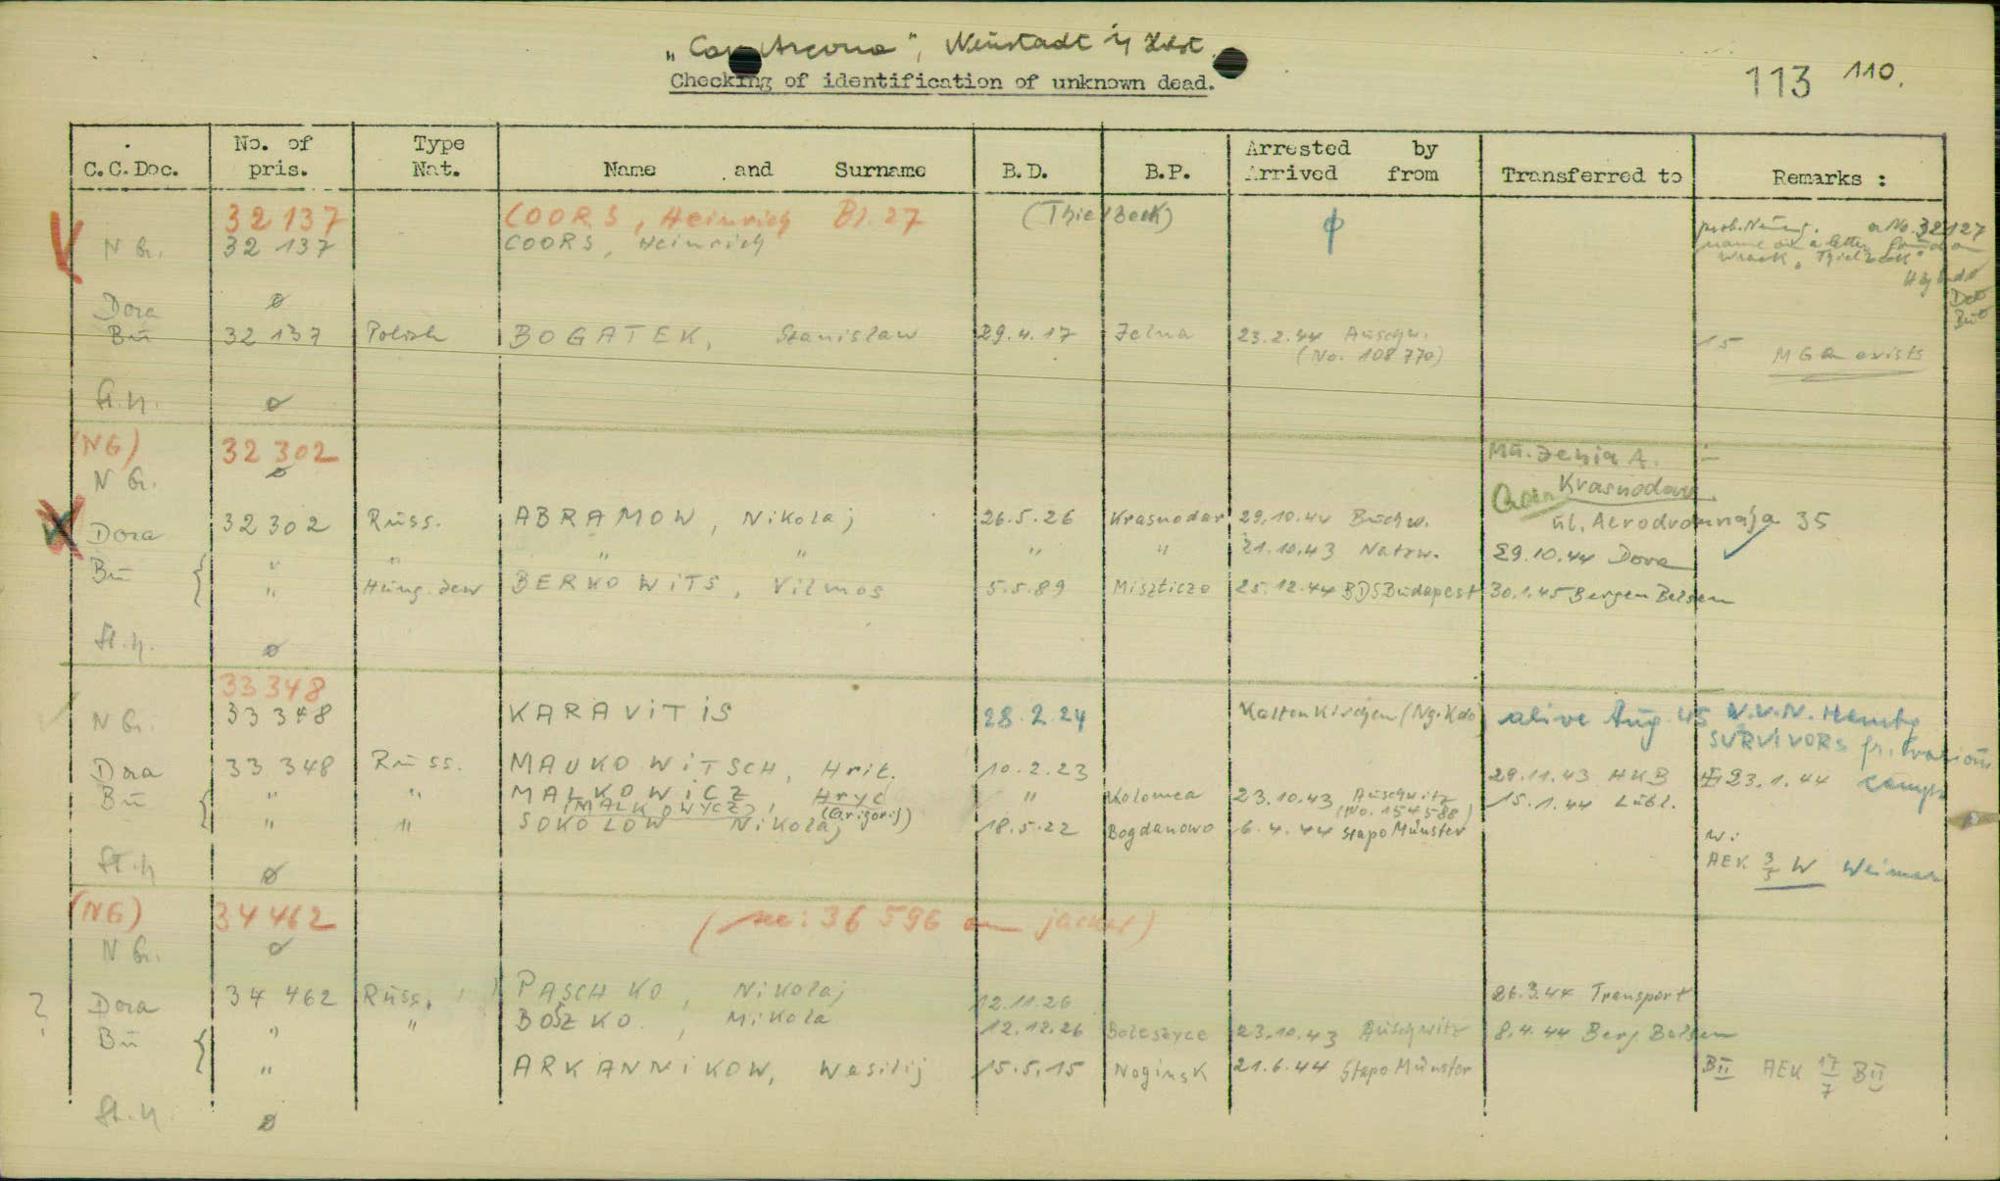 "Cap Arcona", Neustadt i/ Holst.
Checking of identification of unknown dead.
113 110.
C.C.Doc. No. of pris. Type Nat. Name and Surname B.D. B.P. Arrested by Arrived from Transferred to Remarks :
32 137 COORS, Heinrich Bl. 27 (Thielbeck)
N G. 32 137 COORS, Heinrich
a No. 32127
name on a letter found on
wrack "Thielbeck"
Dora ø
Bu 32 137 Polish BOGATEK, Stanislaw 29.4.17 Jelna 23.2.44 Auschw.
(No. 108 770)
15 MGQ exists
St.H. ø
(NG) 32 302
N G. ø
Mu. Jenia A.
Krasnodar
ul. Aerodromnaja 35
Dora 32302 Russ. ABRAMOW, Nikolaj 26.5.26 Krasnodar 29.10.44 Buchw.
Bu " " " " " " 21.10.43 Natzw. 29.10.44 Dora
" Hung. Jew BERKOWITS, Vilmos 5.5.89 Miszticzo 25.12.44 BDS Budapest 30.1.45 Bergen Belsen
St.H. ø
33348
N G. 33348 KARAVITIS 28.2.24 Kaltenkirchen (Ng. Kdo) alive Aug. 45 V.V.N. Hambg
SURVIVORS fr. various camps
Dora 33 348 Russ. MAUKOWITSCH, Hrit. 10.2.23 29.11.43 HKB 23.1.44
Bu " " MALKOWICZ, Hryc " Kolomea 23.10.43 Auschwitz 15.1.44 Lubl.
(MALKOWYCZ) (Grigorij) (No. 154588)
" " SOKOLOW Nikolaj 18.5.22 Bogdanowo 6.4.44 Stapo Münster
W:
AEK 3/5 W Weimar
St.H. ø
(NG) 34462 (no: 36 596 on jacket)
N G. ø
? Dora 34 462 Russ. PASCHKO, Nikolaj 12.11.26 26.3.44 Transport
Bu " " BOSZKO, Mikola 12.12.26 Boleszyce 23.10.43 Auschwitz 8.4.44 Berg. Belsen
" ARKANNIKOW, Wasilij 15.5.15 Noginsk 21.6.44 Stapo Münster BII AEK 17/7 BII
St.H. ø